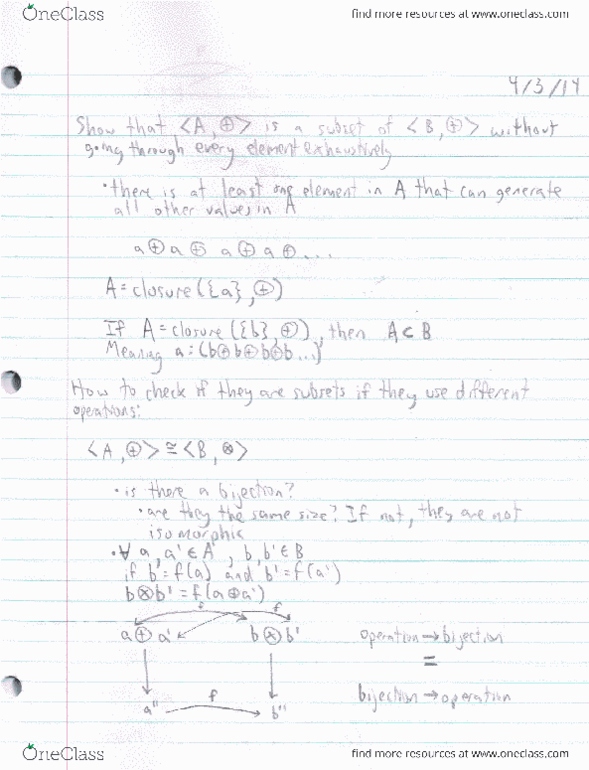 OneClass
find more resources at www.oneclass.com
4/3/14
Show that <A, ⊕> is a subset of <B, ⊕> without
going through every element exhaustively
• there is at least one element in A that can generate
all other values in A
a ⊕ a ⊕ a ⊕ a ⊕ ...
A = closure({a}, ⊕)
If A = closure({b}, ⊕), then A ⊂ B
Meaning a = (b⊕b⊕b⊕b...)
How to check if they are subsets if they use different
operations:
<A, ⊕> ≅ <B, ⊗>
• is there a bijection?
• are they the same size? If not, they are not
isomorphic
• ∀ a, a' ∈ A, b, b' ∈ B
if b = f(a) and b' = f(a')
b ⊗ b' = f(a ⊕ a')
f f
a ⊕ a' b ⊗ b' operation → bijection
=
f bijection → operation
a'' b''
OneClass
find more resources at www.oneclass.com